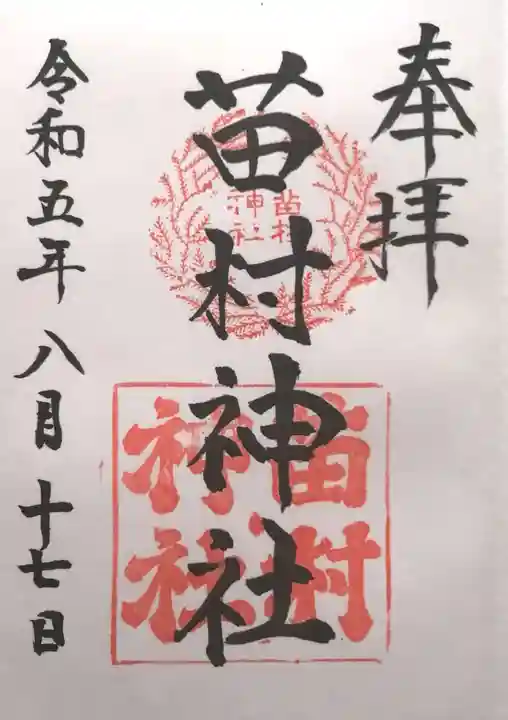 奉拝
苗村神社
苗村
神社
苗村
神社
令和五年 八月 十七日